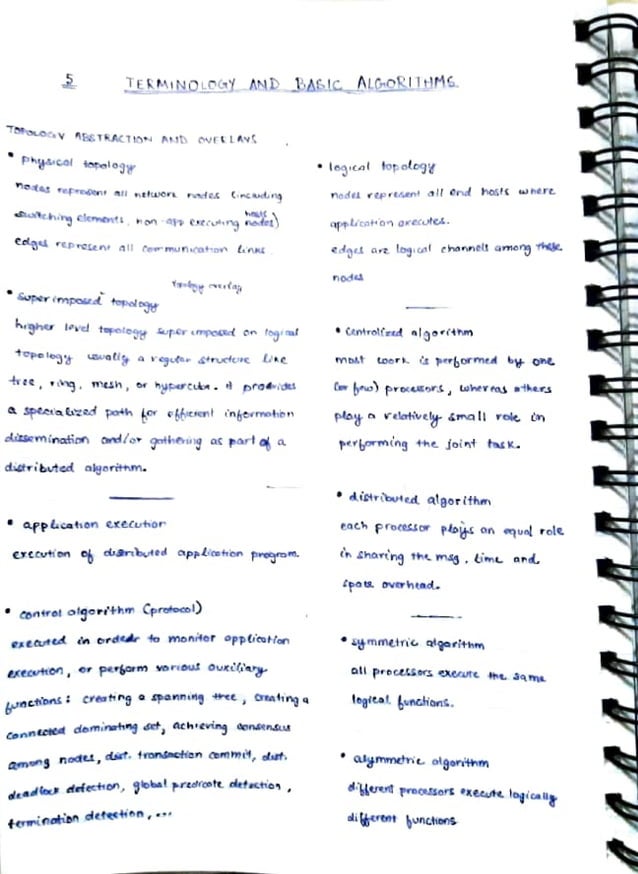 5 TERMINOLOGY AND BASIC ALGORITHMS
TOPOLOGY ABSTRACTION AND OVERLAYS
• physical topology
nodes represent all network nodes (including
switching elements, non-app executing hosts nodes)
edges represent all communication links.
topology overlay
• superimposed topology
higher level topology superimposed on logical
topology usually a regular structure like
tree, ring, mesh, or hypercube. it provides
a specialized path for efficient information
dissemination and/or gathering as part of a
distributed algorithm.
• application execution
execution of distributed application program.
• control algorithm (protocol)
executed in order to monitor application
execution, or perform various auxiliary
functions: creating a spanning tree, creating a
connected dominating set, achieving consensus
among nodes, dist. transaction commit, dist.
deadlock detection, global predicate detection,
termination detection, ...
• logical topology
nodes represent all end hosts where
application executes.
edges are logical channels among these
nodes
• centralized algorithm
most work is performed by one
(or few) processors, whereas others
play a relatively small role in
performing the joint task.
• distributed algorithm
each processor plays an equal role
in sharing the msg, time and
space overhead.
• symmetric algorithm
all processors execute the same
logical functions.
• asymmetric algorithm
different processors execute logically
different functions